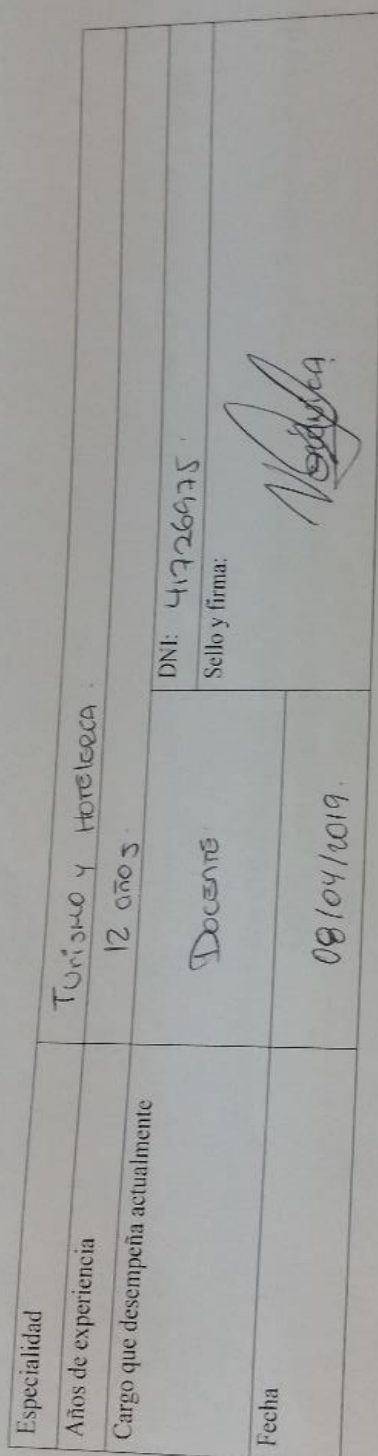 Especialidad Turismo y Hotelería.
Años de experiencia 12 años.
Cargo que desempeña actualmente Docente. DNI: 41726975.
Sello y firma:
Fecha 08/04/2019.